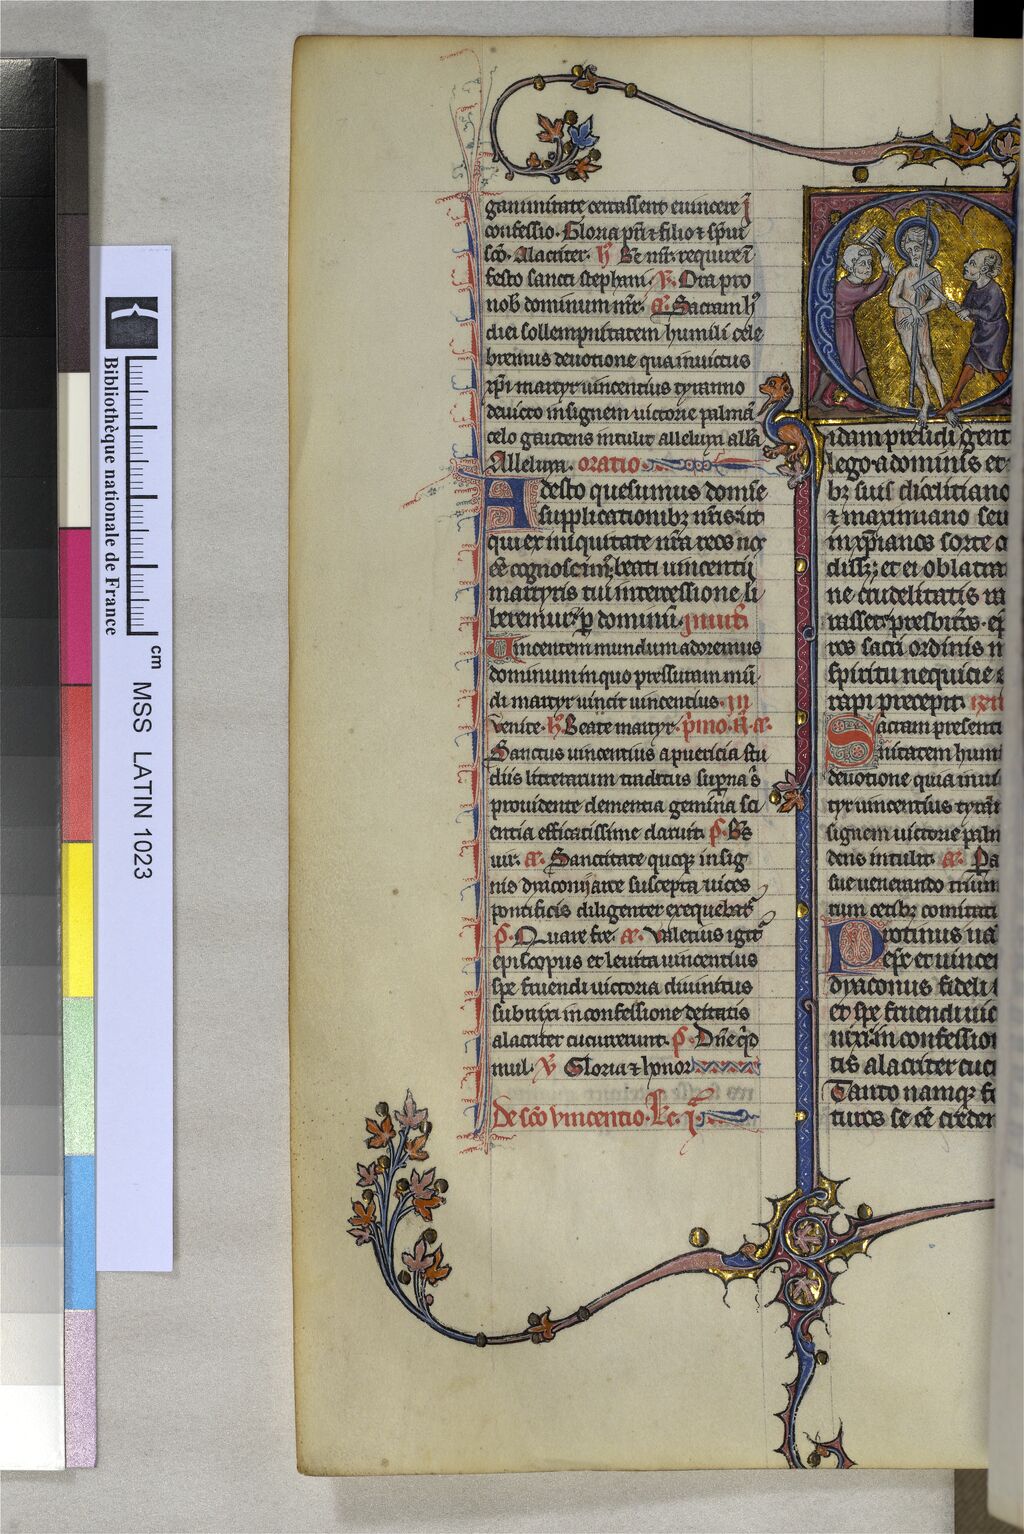 Bibliothèque nationale de France
cm
MSS LATIN 1023
ganimitate certassent euincere ī
confessio. Gloria pr̄i ⁊ filio ⁊ sp̄ui
sc̄o. Alacriter. ℟ Be nr̄ require ī
festo sancti stephani. ℣. Ora pro
nob dominum nr̄e. a. Sacram hꝰ
diei sollempnitatem humili cele
bremus deuotione qua inuictus
xp̄i martyr uincentius tyranno
deuicto insignem uictorie palmā
celo gaudens intulit alleluya all'a
Alleluya. oratio
Adesto quesumus domīe
supplicationibꝫ nr̄is ut
qui ex iniquitate nr̄a reos nos
eē cognoscimꝰ beati uincentij
martyris tui intercessione li
beremur. p dominū. Inuit̄
Uincentem mundum adoremus
dominum in quo pressuram mū
di martyr uincit uincentius. in
Venite. hꝰ Beate martyr. p̄mo. N. a.
Sanctus uincentius a puericia stu
diis litterarum traditus superna s
prouidente clementia gemina sci
entia efficatissime claruit. ps. Bs̄
uir. a. Sanctitate quoqꝫ insig
nis dyaconij arce suscepta uices
pontificis diligenter exequebat᷑
ps. Quare fre. a. Valerius igit᷑
episcopus et leuita uincentius
spe fruendi uictoria diuinitus
subnixi in confessione deitatis
alacriter cucurrerunt. ps. Dn̄e qd
mul. ℣ Gloria ⁊ honor
de sc̄o vincentio. Lc. j.ª
idam presidi gent
lego a dominis et
bꝫ suis dioclitiano
⁊ maximiano seu
in xp̄ianos sorte c
dissꝫ: et ei oblatam
ne crudelitatis m
rasset: presbit̄os. ep
ros sacri ordinis m
spiritu nequicie
rapi precepit.
Sacram presenti
nitatem humi
deuotione quia inui
tyr uincentius tyran
signem uictorie palm
dens intulit. a. Pa
sue uenerando trium
rum cetibꝫ comitati
Protinus ua
epc̄ et uincen
dyaconus fideli
et spe fruendi uic
nixi in confession
tis alacriter cuc
Tanto namqꝫ fe
turos se eē creden